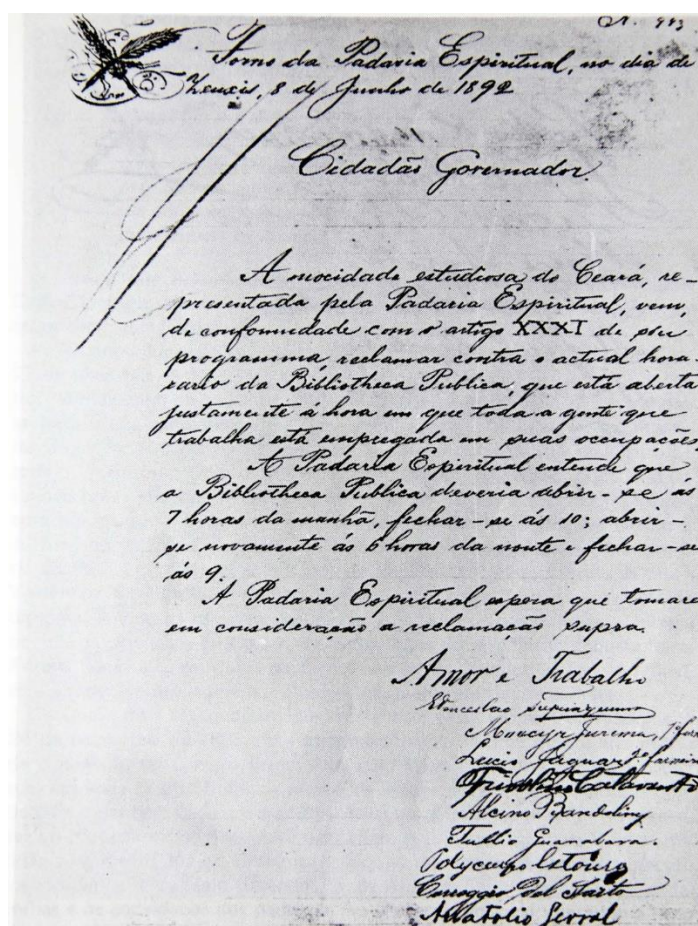 N. 993
Forno da Padaria Espiritual, no dia de
Zeuxis, 8 de Junho de 1892
Cidadão Governador.
A mocidade estudiosa do Ceará, re-
presentada pela Padaria Espiritual, vem,
de conformidade com o artigo XXXI de seu
programma, reclamar contra o actual hora-
rario da Bibliotheca Publica, que está aberta
justamente á hora em que toda a gente que
trabalha está empregada em suas occupações.
A Padaria Espiritual entende que
a Bibliotheca Publica deveria abrir-se ás
7 horas da manhã, fechar-se ás 10; abrir-
se novamente ás 6 horas da noute e fechar-se
ás 9.
A Padaria Espiritual espera que tomareis
em consideração a reclamação supra.
Amor e Trabalho
Wenceslao Tupiniquim
Moacyr Jurema, 1º
Lucio Jaguar 2º
Frivolino Catavento
Alcino Bandolim
Tullio Guanabara.
Polycarpo Estouro
Corregio Del Sarto
Anatolio Gerval